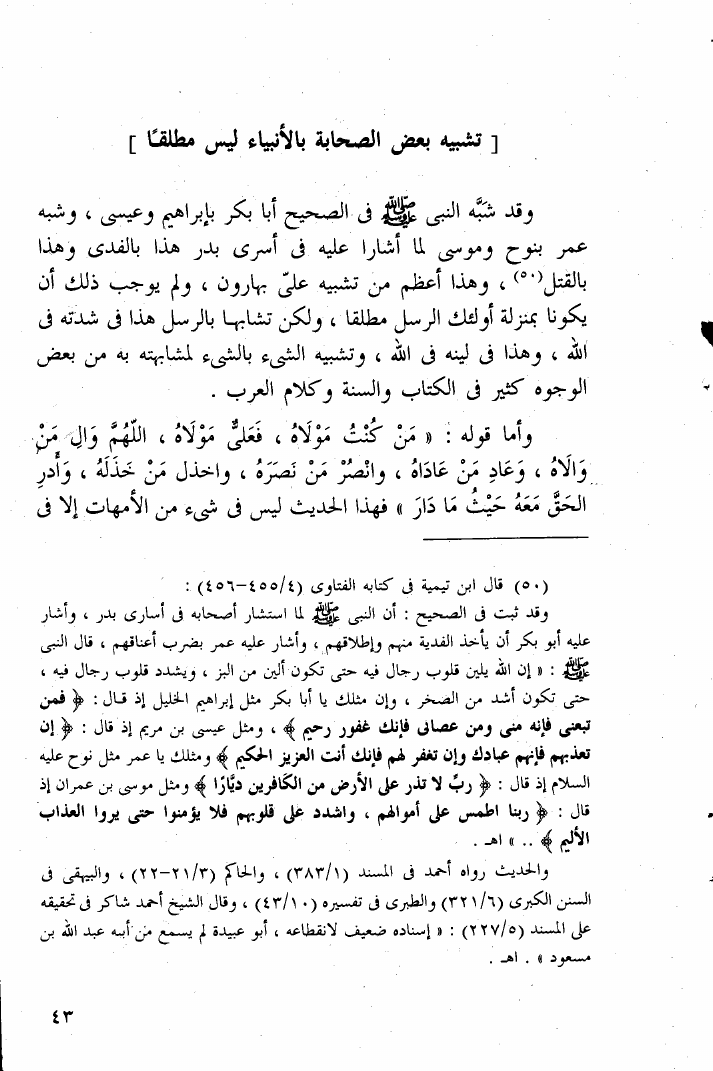 [ تشبيه بعض الصحابة بالأنبياء ليس مطلقًا ]
وقد شَبَّه النبى ﷺ فى الصحيح أبا بكر بإبراهيم وعيسى ، وشبه
عمر بنوح وموسى لما أشارا عليه فى أسرى بدر هذا بالفدى وهذا
بالقتل(٥٠) ، وهذا أعظم من تشبيه علىّ بهارون ، ولم يوجب ذلك أن
يكونا بمنزلة أولئك الرسل مطلقا ، ولكن تشابها بالرسل هذا فى شدته فى
الله ، وهذا فى لينه فى الله ، وتشبيه الشىء بالشىء لمشابهته به من بعض
الوجوه كثير فى الكتاب والسنة وكلام العرب .
وأما قوله : « مَنْ كُنْتُ مَوْلَاهُ ، فَعَلىٌّ مَوْلَاهُ ، اللّهُمَّ وَالِ مَنْ
وَالَاهُ ، وَعَادِ مَنْ عَادَاهُ ، وانْصُرْ مَنْ نَصَرَهُ ، واخذل مَنْ خَذَلَهُ ، وَأَدرِ
الحَقَّ مَعَهُ حَيْثُ مَا دَارَ » فهذا الحديث ليس فى شىء من الأمهات إلا فى
(٥٠) قال ابن تيمية فى كتابه الفتاوى (٤/٤٥٥–٤٥٦) :
وقد ثبت فى الصحيح : أن النبى ﷺ لما استشار أصحابه فى أسارى بدر ، وأشار
عليه أبو بكر أن يأخذ الفدية منهم وإطلاقهم ، وأشار عليه عمر بضرب أعناقهم ، قال النبى
ﷺ : « إن الله يلين قلوب رجال فيه حتى تكون ألين من البز ، ويشدد قلوب رجال فيه ،
حتى تكون أشد من الصخر ، وإن مثلك يا أبا بكر مثل إبراهيم الخليل إذ قال : ﴿ فمن
تبعنى فإنه منى ومن عصانى فإنك غفور رحيم ﴾ ، ومثل عيسى بن مريم إذ قال : ﴿ إن
تعذبهم فإنهم عبادك وإن تغفر لهم فإنك أنت العزيز الحكيم ﴾ ومثلك يا عمر مثل نوح عليه
السلام إذ قال : ﴿ ربِّ لا تذر على الأرض من الكَافرين ديَّارًا ﴾ ومثل موسى بن عمران إذ
قال : ﴿ ربنا اطمس على أموالهم ، واشدد على قلوبهم فلا يؤمنوا حتى يروا العذاب
الأليم ﴾ .. » اهـ .
والحديث رواه أحمد فى المسند (٣٨٣/١) ، والحاكم (٢١/٣–٢٢) ، والبيهقى فى
السنن الكبرى (٣٢١/٦) والطبرى فى تفسيره (٤٣/١٠) ، وقال الشيخ أحمد شاكر فى تحقيقه
على المسند (٢٢٧/٥) : « إسناده ضعيف لانقطاعه ، أبو عبيدة لم يسمع من أبيه عبد الله بن
مسعود » . اهـ .
٤٣